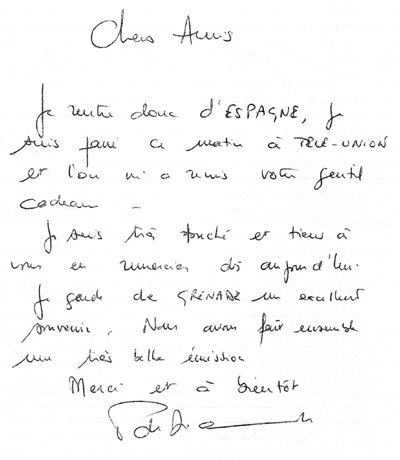 Chers Amis
Je rentre donc d'ESPAGNE, Je
suis passé ce matin à TÉLÉ-UNION
et l'on m'a remis votre gentil
cadeau -
Je suis très touché et tiens à
vous en remercier dès aujourd'hui.
Je garde de GRENADE un excellent
souvenir. Nous avons fait ensemble
une très belle émission
Merci et à bientôt